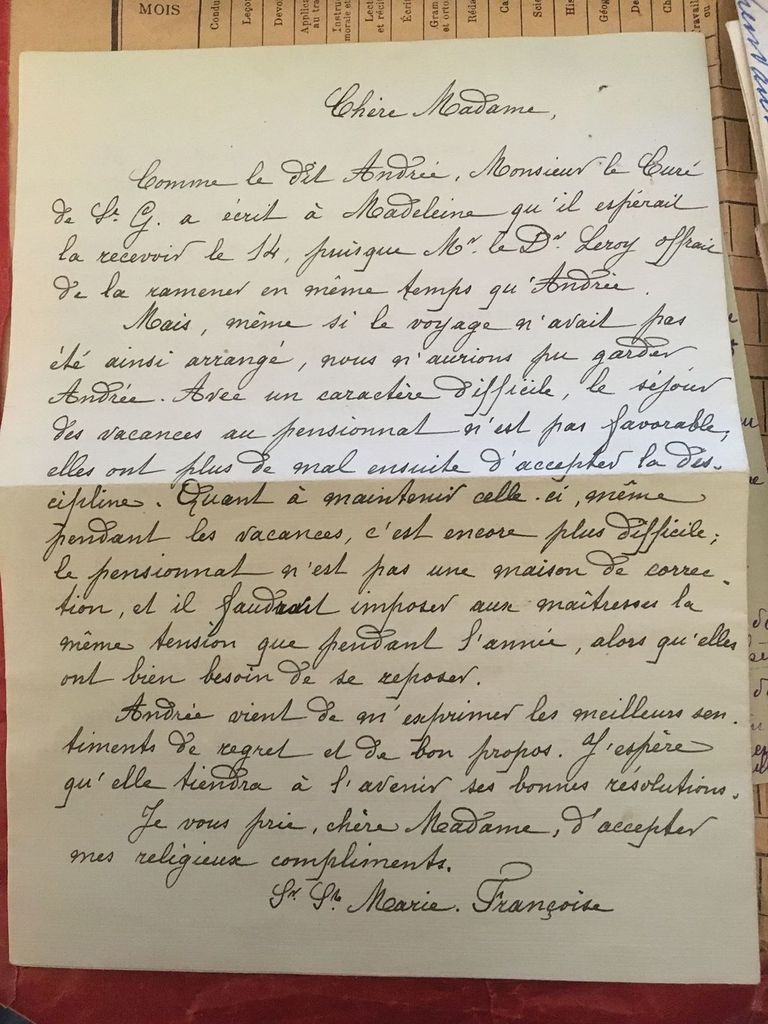 MOIS
Condu
Leçon
Devo
Applica
au tra
Instru
morale e
Lect
et réci
Écri
Gram
et orto
Réda
Ca
Scie
His
Géog
De
Ch
Travail
ou
Chère Madame,
Comme le dit Andrée, Monsieur le Curé
de St. G. a écrit à Madeleine qu'il espérait
la recevoir le 14, puisque Mr. le Dr. Leroy offrait
de la ramener en même temps qu'Andrée.
Mais, même si le voyage n'avait pas
été ainsi arrangé, nous n'aurions pu garder
Andrée. Avec un caractère difficile, le séjour
des vacances au pensionnat n'est pas favorable;
elles ont plus de mal ensuite d'accepter la dis-
cipline. Quant à maintenir celle-ci, même
pendant les vacances, c'est encore plus difficile;
le pensionnat n'est pas une maison de correc-
tion, et il faudrait imposer aux maîtresses la
même tension que pendant l'année, alors qu'elles
ont bien besoin de se reposer.
Andrée vient de m'exprimer les meilleurs sen-
timents de regret et de bon propos. J'espère
qu'elle tiendra à l'avenir ses bonnes résolutions.
Je vous prie, chère Madame, d'accepter
mes religieux compliments.
Sr. St. Marie. Françoise